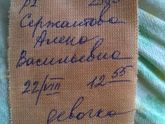 Сержантова
Алена
Васильевна
22/VIII 12 55
девочка